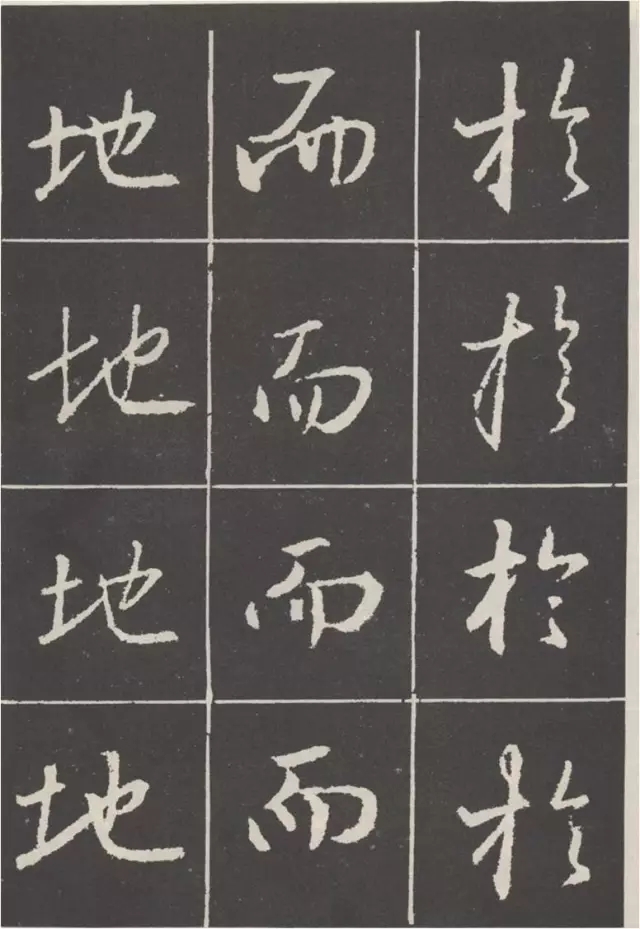 於於於於
而而而而
地地地地